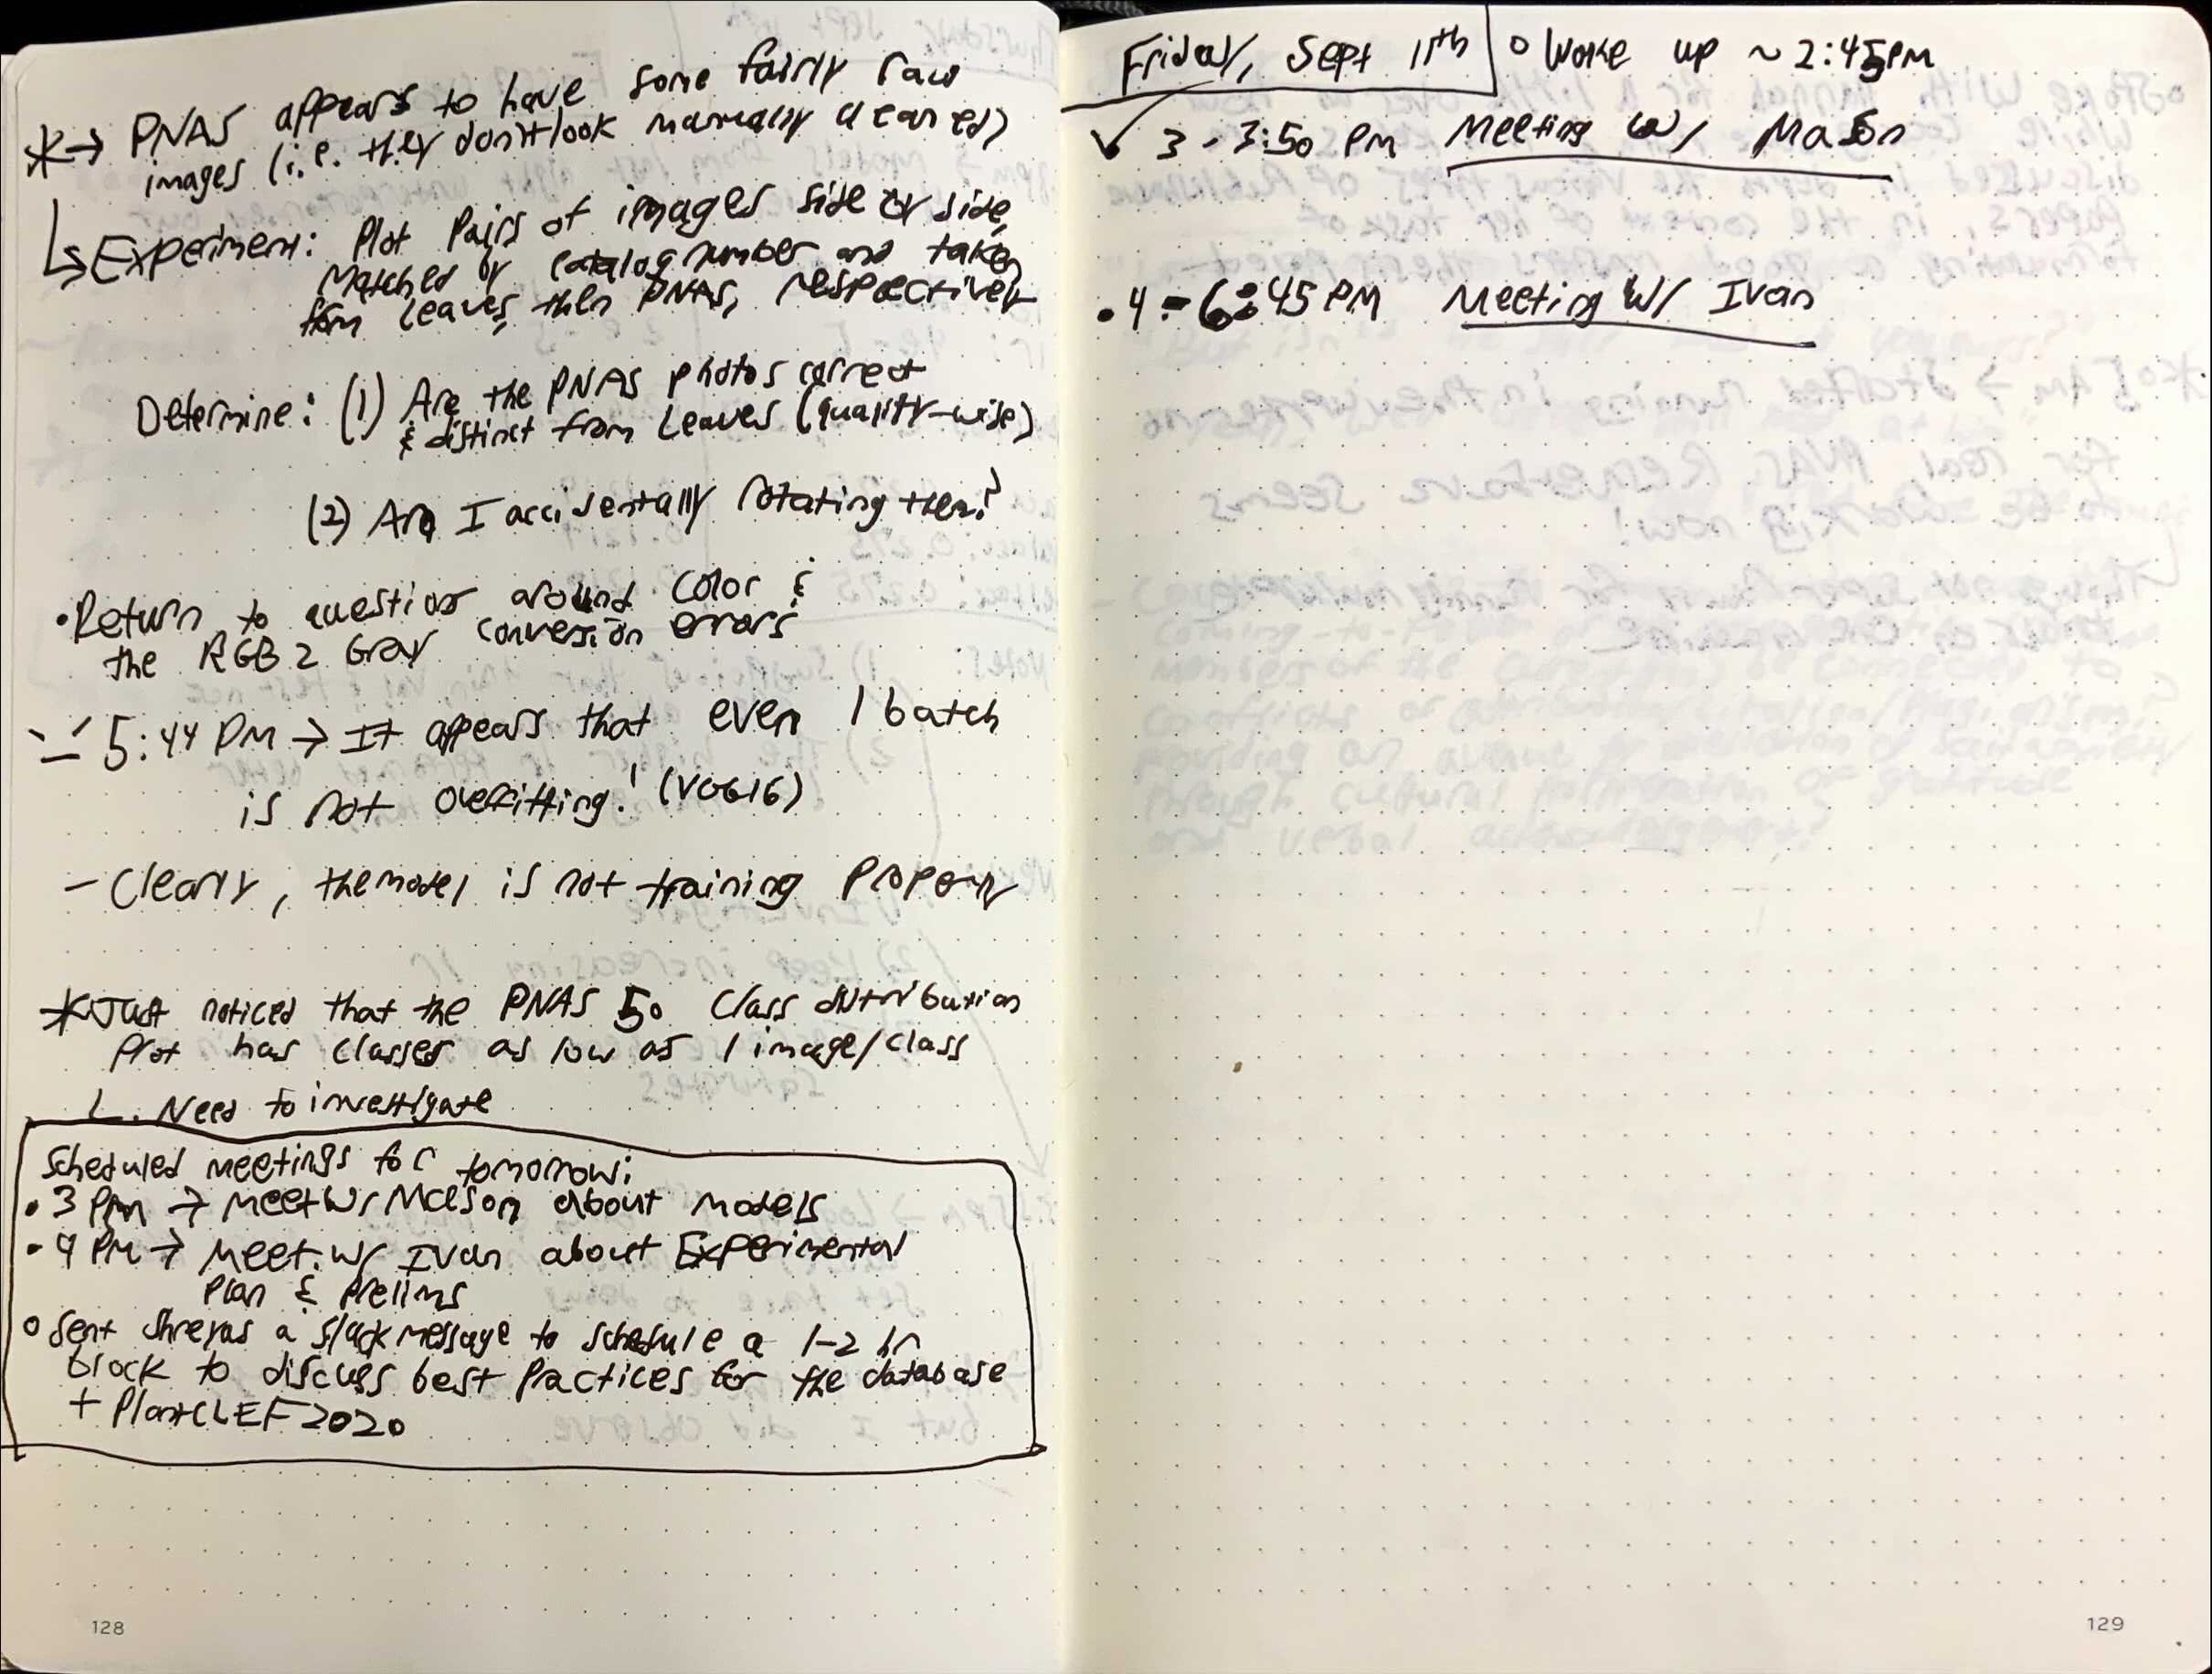 *→ PNAS appears to have some fairly raw
images (i.e. they don't look manually cleaned)
↳ Experiment: Plot Pairs of images side by side,
Matched by catalog number and taken
from Leaves, then PNAS, respectively
Determine: (1) Are the PNAS photos correct
& distinct from Leaves (quality-wise)
(2) Am I accidentally rotating them?
•Return to question around color &
the RGB 2 Gray conversion errors
5:44 PM → It appears that even 1 batch
is not overfitting! (VGG16)
- Clearly, the model is not training properly
*Just noticed that the PNAS 50 Class distribution
Plot has classes as low as 1 image/class
L. Need to investigate
Scheduled meetings for tomorrow:
• 3 PM → Meet w/ Mason about models
• 4 PM → Meet w/ Ivan about Experimental
Plan & Prelims
o Sent Shreyas a slack message to schedule a 1-2 hr
block to discuss best practices for the database
+ PlantCLEF2020
128
Friday, Sept 11th o Woke up ~2:45PM
✓ 3 - 3:50 PM Meeting w/ Mason
• 4 - 6:45 PM Meeting w/ Ivan
129